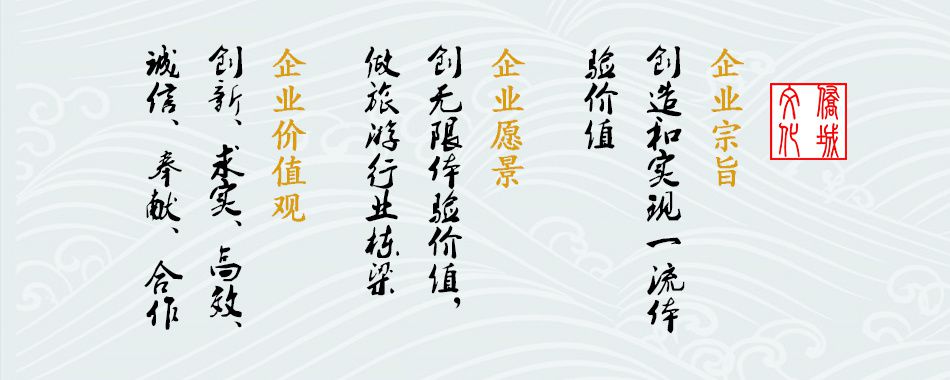 僑城
文化
企业宗旨
创造和实现一流体
验价值
企业愿景
创无限体验价值，
做旅游行业栋梁
企业价值观
创新、求实、高效、
诚信、奉献、合作